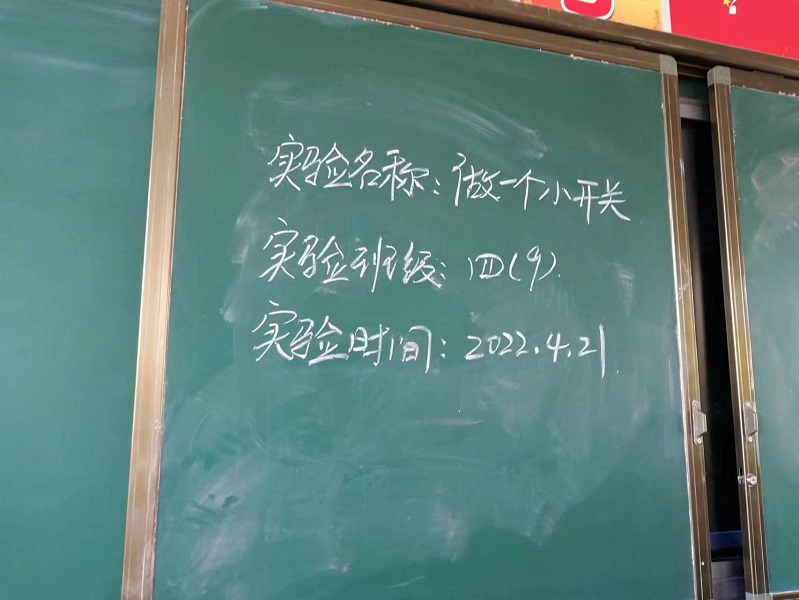 实验名称：做一个小开关
实验班级：四(9).
实验时间：2022.4.21.